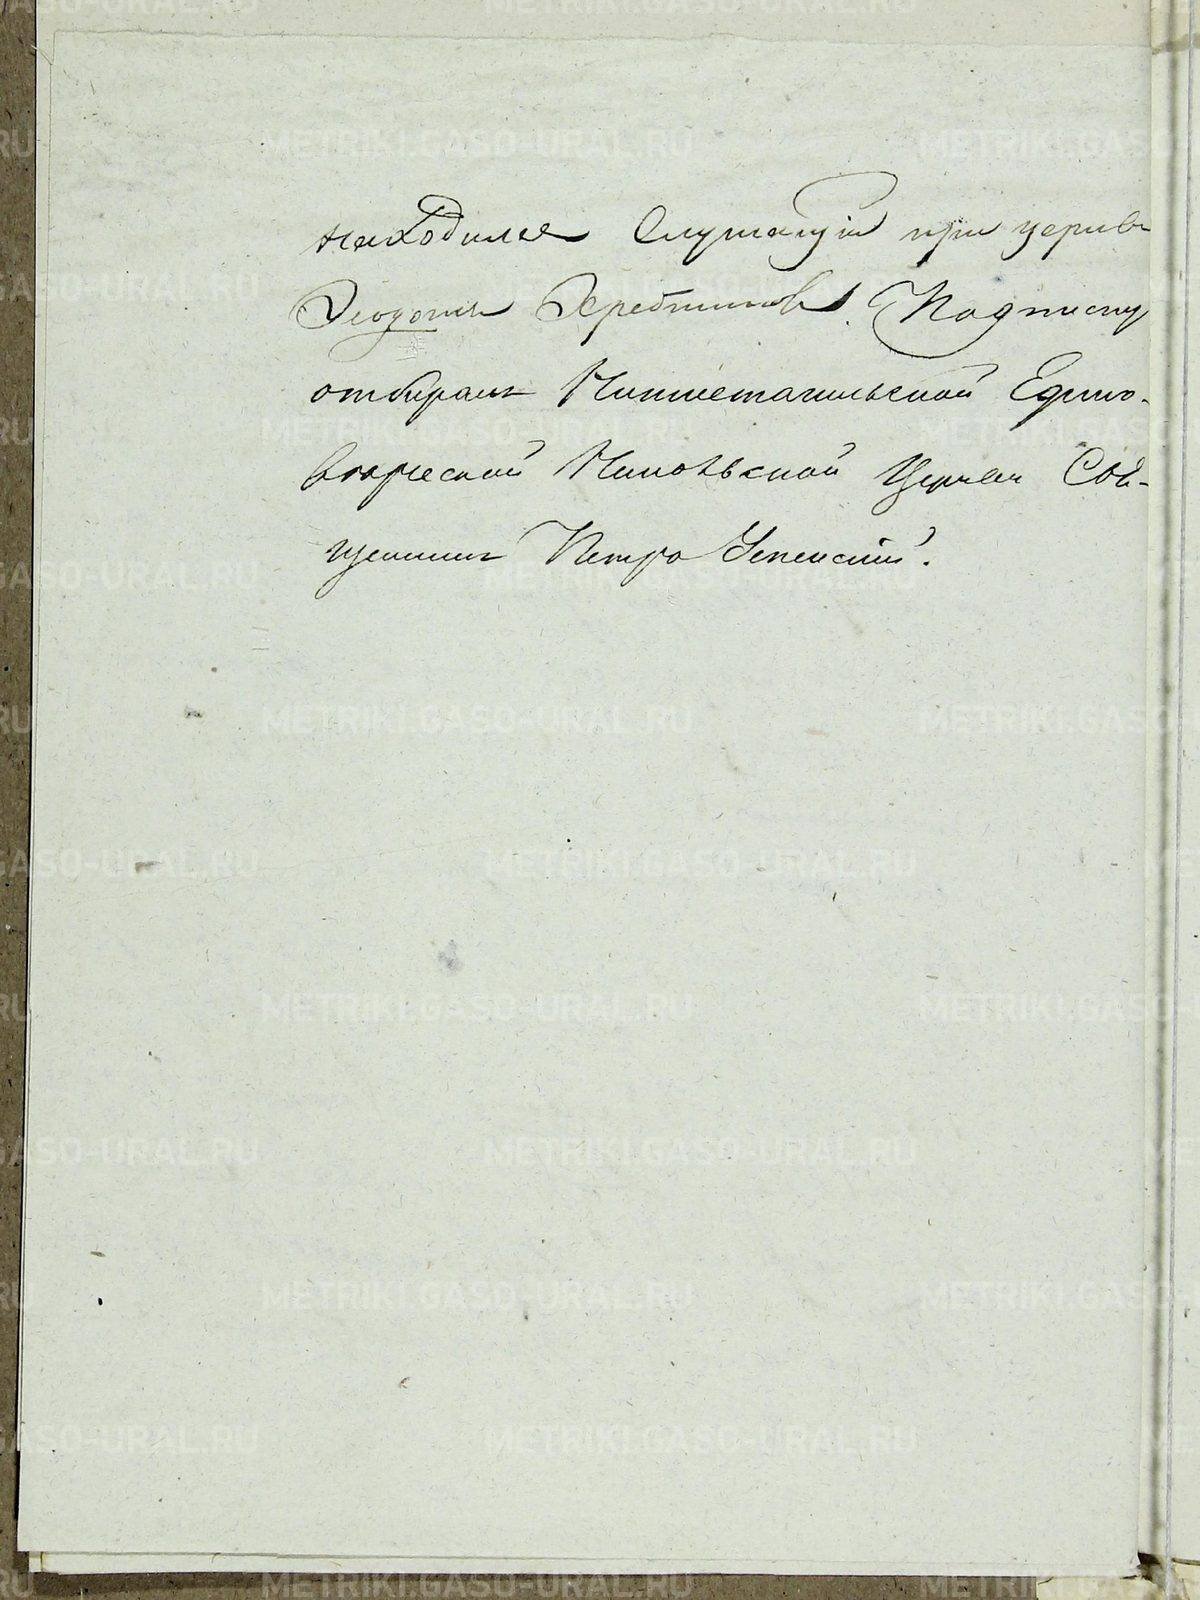 находился Служащій при церкви
Ѳеодотъ Серебряковъ. Подписку
отбиралъ Нижнетагильской Едино-
вѣрческой Никольской Церкви Свя-
щенникъ Петръ Успенскій.